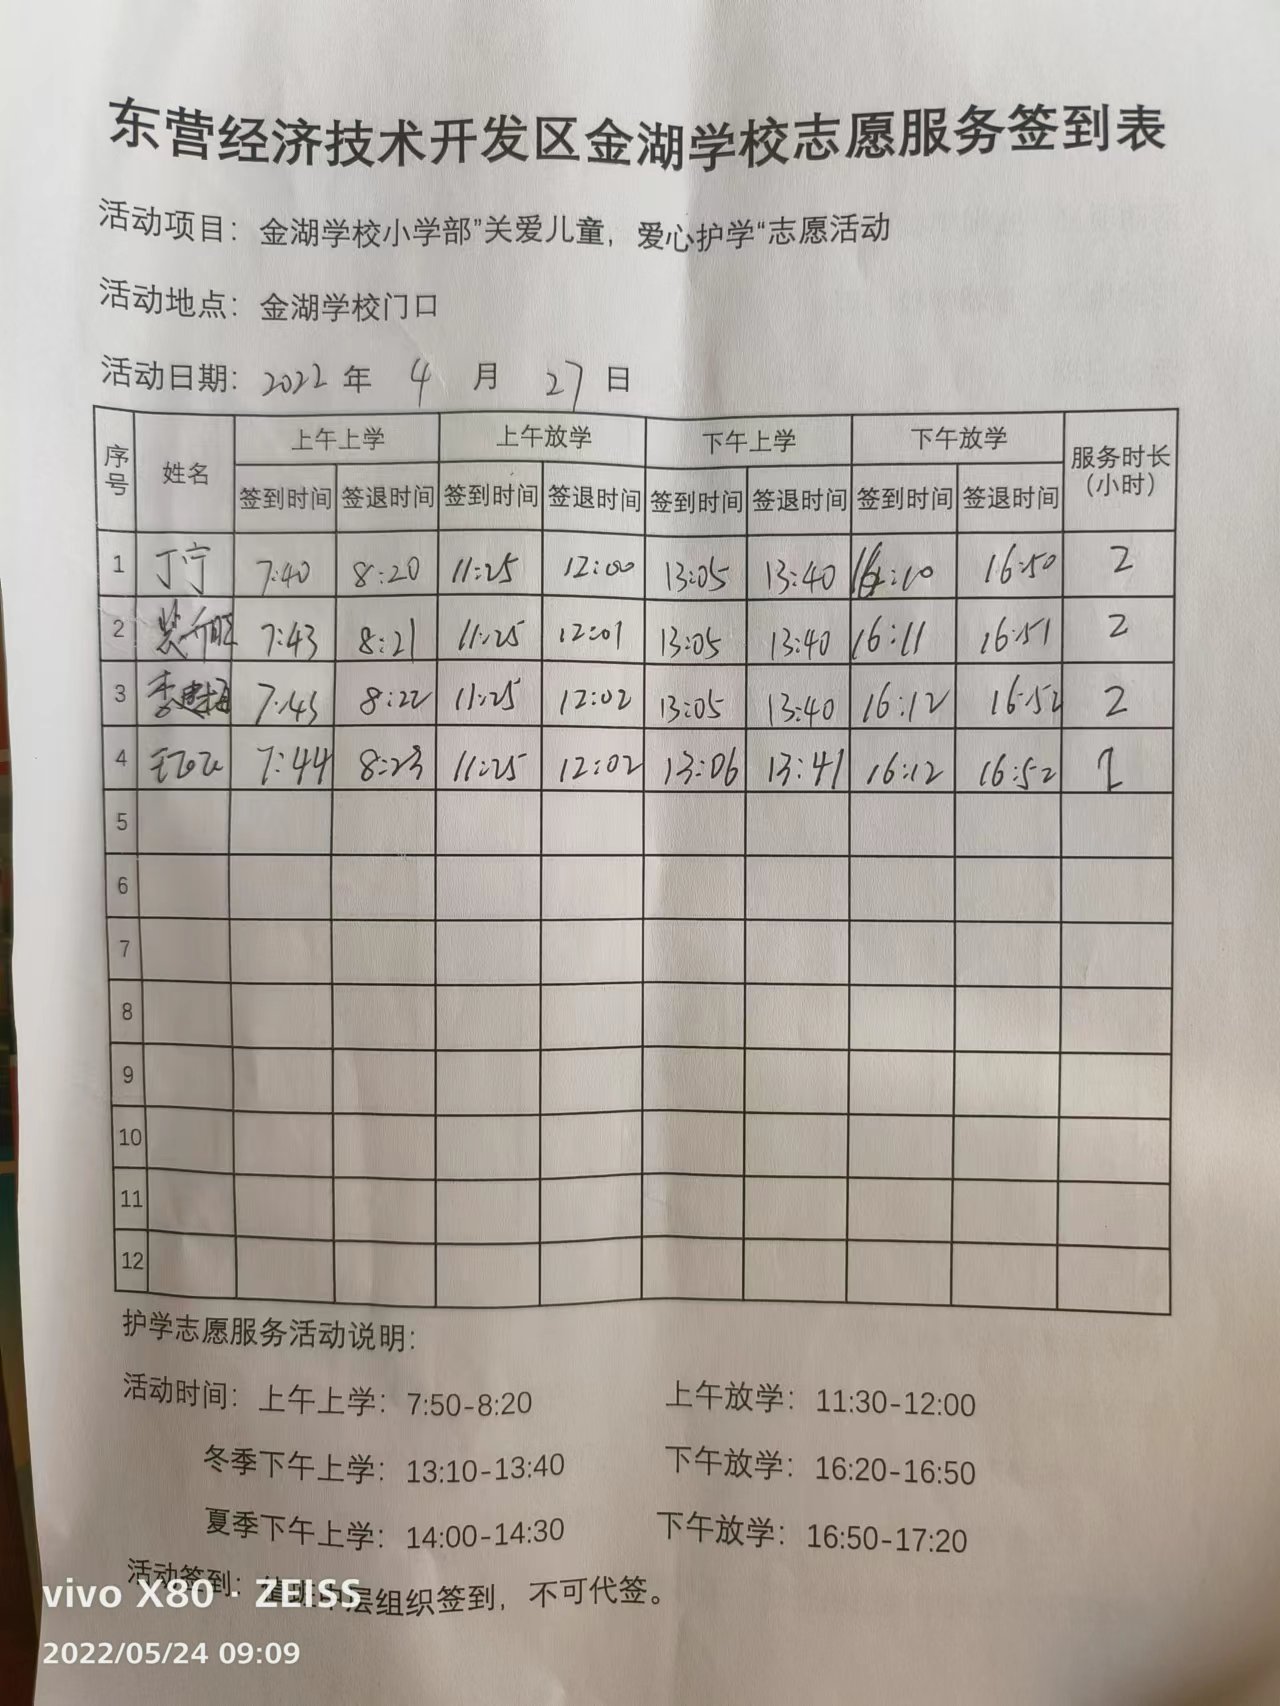 东营经济技术开发区金湖学校志愿服务签到表
活动项目：金湖学校小学部”关爱儿童，爱心护学“志愿活动
活动地点：金湖学校门口
活动日期：2022 年 4 月 27 日
序号 姓名 上午上学 上午放学 下午上学 下午放学 服务时长（小时）
签到时间 签退时间 签到时间 签退时间 签到时间 签退时间 签到时间 签退时间
1 丁宁 7:40 8:20 11:25 12:00 13:05 13:40 16:10 16:50 2
2 7:43 8:21 11:25 12:01 13:05 13:40 16:11 16:51 2
3 李 7:43 8:22 11:25 12:02 13:05 13:40 16:12 16:52 2
4 7:44 8:23 11:25 12:02 13:06 13:41 16:12 16:52
5
6
7
8
9
10
11
12
护学志愿服务活动说明：
活动时间：上午上学：7:50-8:20 上午放学：11:30-12:00
冬季下午上学：13:10-13:40 下午放学：16:20-16:50
夏季下午上学：14:00-14:30 下午放学：16:50-17:20
活动签到：值班中层组织签到，不可代签。
vivo X80 · ZEISS
2022/05/24 09:09